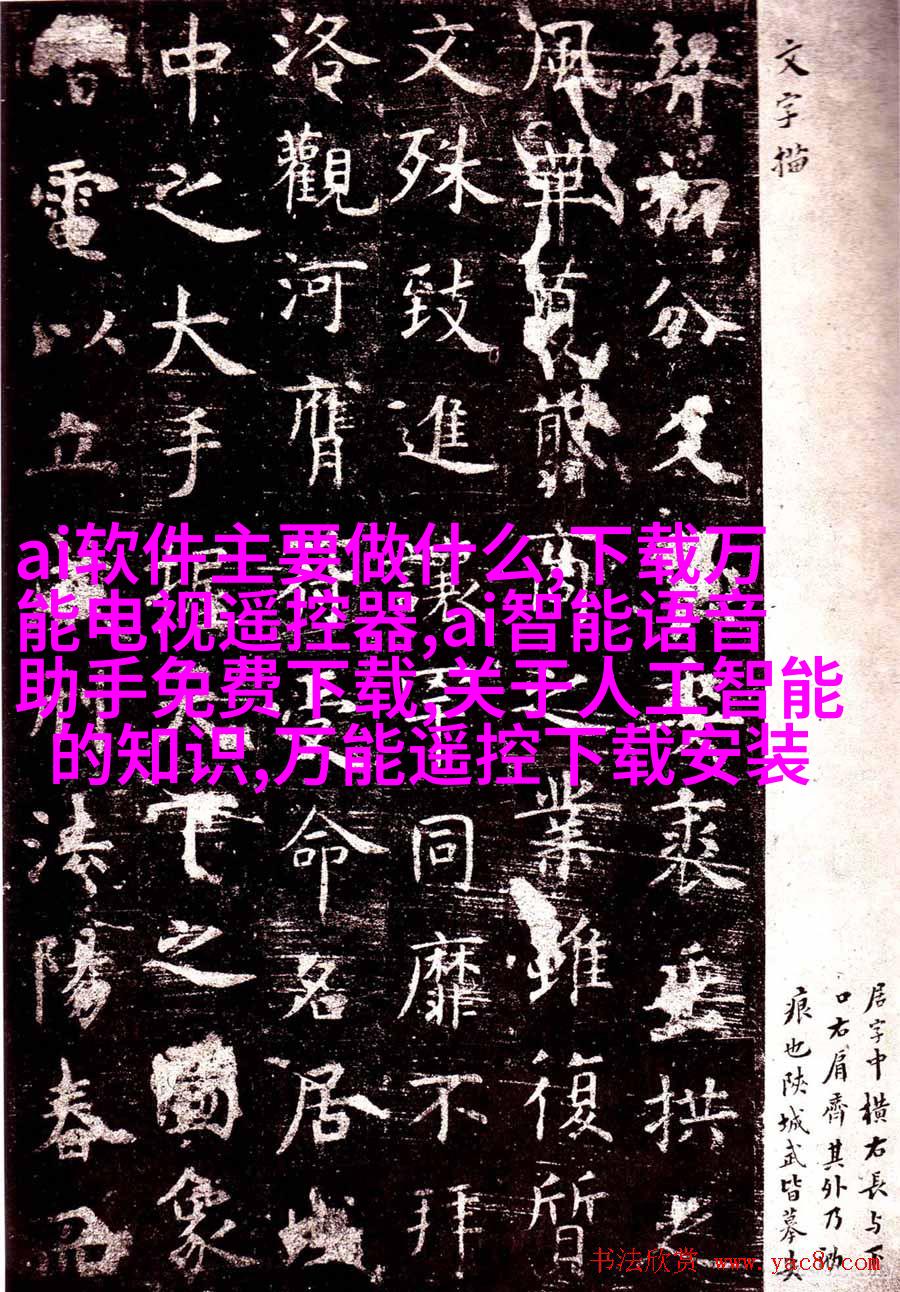 文字描
居字中橫右長与下
口右肩齊其外乃泐
痕也陕城武皆摹失
分
裘垂拱之
風革夏翦商之業雖復質
文殊致進讓罕同靡不拜
洛觀河膺符受命名居域
中之大手握天下之圖象
雷電以立威刑法陽春而
ai软件主要做什么,下载万
能电视遥控器,ai智能语音
助手免费下载,关于人工智能
的知识,万能遥控下载安装
书法欣赏 www.yac8.com